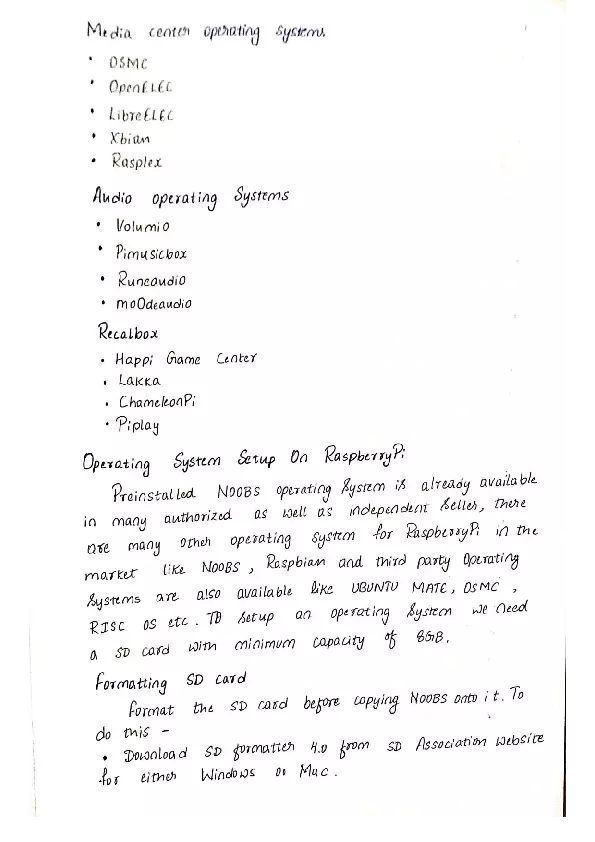 Media center operating systems
• OSMC
• OpenELEC
• LibreELEC
• Xbian
• Rasplex
Audio operating Systems
• Volumio
• Pimusicbox
• Runeaudio
• moOdeaudio
Recalbox
• Happi Game Center
• Lakka
• ChameleonPi
• Piplay
Operating System Setup On RaspberryPi
Preinstalled NOOBS operating System is already available
in many authorized as well as independent Seller, there
are many other operating system for RaspberryPi in the
market like NOOBS, Raspbian and third party Operating
Systems are also available like UBUNTU MATE, OSMC,
RISC OS etc. To Setup an operating System we need
a SD card with minimum capacity of 8GB.
Formatting SD card
Format the SD card before copying NOOBS onto it. To
do this -
• Download SD formatter 4.0 from SD Association website
for either Windows or Mac.